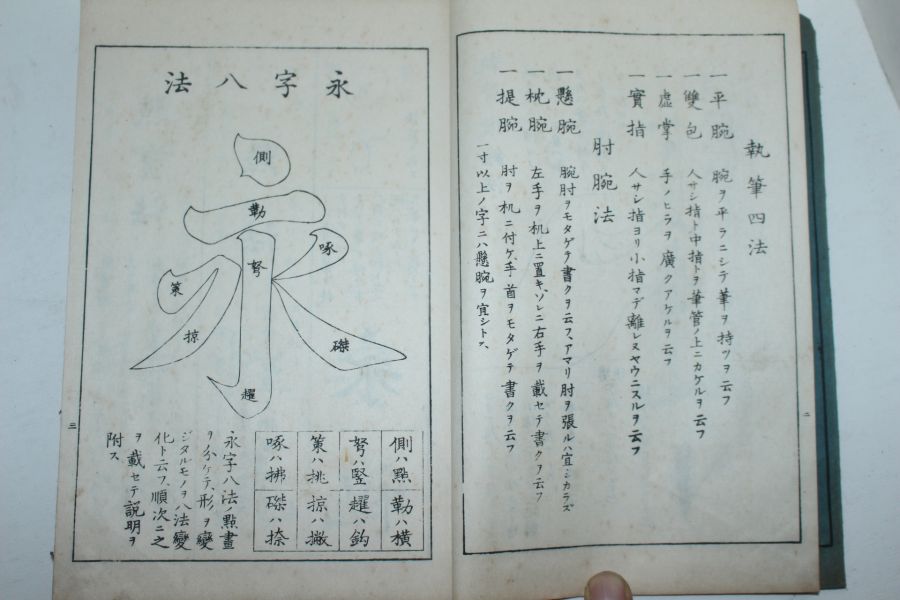 執筆四法
一平腕 腕ヲ平ラニシテ筆ヲ持ツヲ云フ
一雙包 人サシ指ト中指トヲ筆管ノ上ニカケルヲ云フ
一虚掌 手ノヒラヲ廣クアケルヲ云フ
一實指 人サシ指ヨリ小指マデ離レヌヤウニスルヲ云フ
肘腕法
一懸腕 腕肘ヲモタゲテ書クヲ云フ、アマリ肘ヲ張ルハ宜シカラズ
一枕腕 左手ヲ机上ニ置キ、ソレニ右手ヲ載セテ書クヲ云フ
一提腕 肘ヲ机ニ付ケ、手首ヲモタゲテ書クヲ云フ
一寸以上ノ字ニハ懸腕ヲ宜シトス、
二
永字八法
側
勒
努
啄
策
掠
磔
趯
側ハ點 勒ハ横
努ハ豎 趯ハ鈎
策ハ挑 掠ハ撇
啄ハ拂 磔ハ捺
永字八法ノ點畫
ヲ分ケテ、形ヲ變
ジタルモノヲ八法變
化ト云フ、順次ニ之
ヲ載セテ説明ヲ
附ス
三